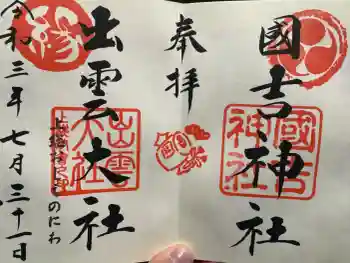 奉拝
國吉神社
國吉神社
出雲大社
出雲大社
上総社
ときのにわ
令和三年七月三十一日